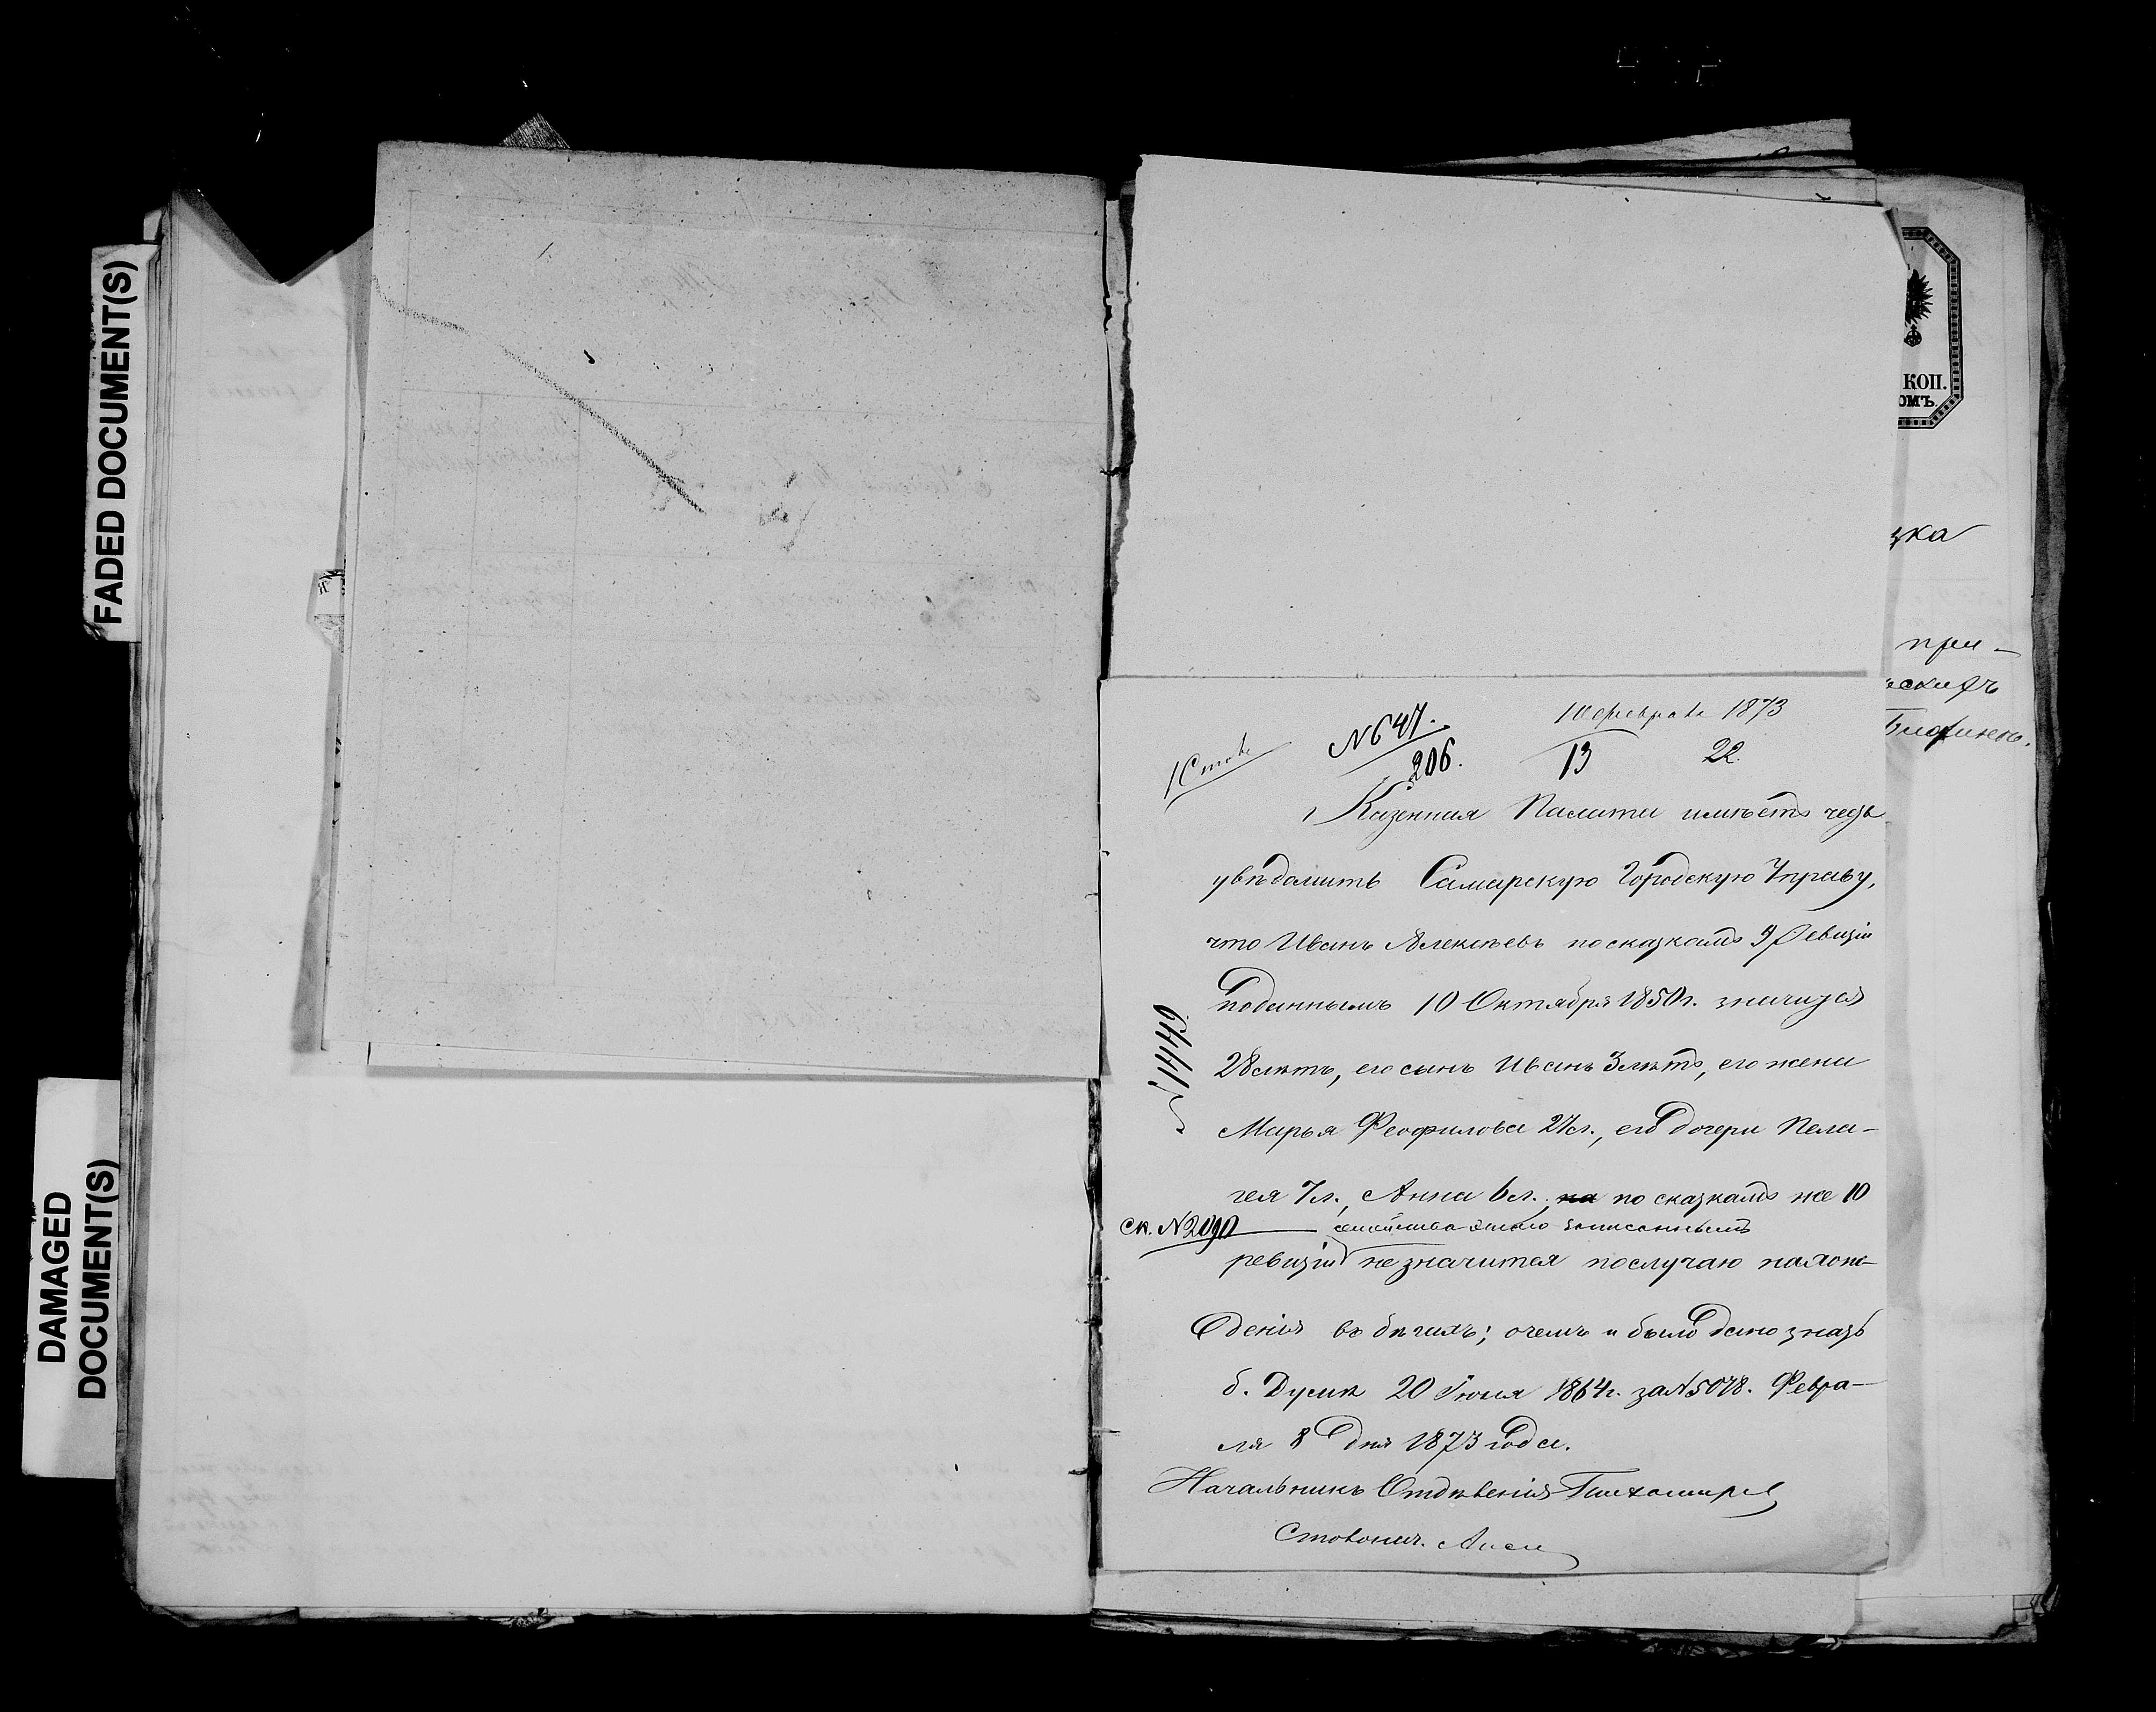 FADED DOCUMENT(S)
DAMAGED
DOCUMENT(S)
КОП.
ОМЪ.
зка
при-
1 Столъ
№ 647.
206.
10 февраля 1873
13 22.
Казенная Палата имѣетъ честь
увѣдомить Самарскую Городскую Управу,
что Иванъ Алексѣевъ по сказкамъ 9 Ревизіи
поданнымъ 10 Октября 1850 г. значится
28 лѣтъ, его сынъ Иванъ 3 лѣтъ, его жена
Марья Феофилова 27 л., его дочери Пела-
гея 7 л., Анна 6 л., на по сказкамъ же 10
ск. № 2090 семейство этого записаннымъ
ревизіи не значится по случаю нахож-
денія въ бѣгахъ; о чемъ и было дано знать
б. Думѣ 20 Іюня 1864 г. за № 5078. Февра-
ля 8 дня 1873 года.
Начальникъ Отдѣленія Тихомировъ
Столонач.
№ 1446